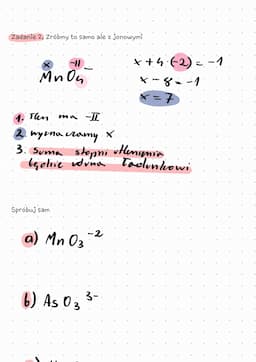 Zadanie 2. Zróbmy to samo ale z jonowymi
x -II
MnO₄⁻
x + 4·(-2) = -1
x - 8 = -1
x = 7
1. Tlen ma -II
2 wyznaczamy x
3. Suma stopni utlenienia
będzie równa ładunkowi
Spróbuj sam
a) MnO₃⁻²
b) AsO₃³⁻